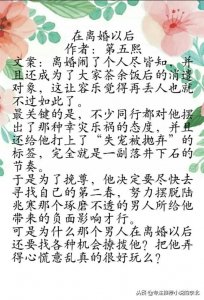 在离婚以后
作者：第五熙
文案：离婚闹了个人尽皆知，并
且还成为了大家茶余饭后的消遣
对象，这让容乐觉得再丢人也就
不过如此了。
最关键的是，不少同行都对他摆
出了那种幸灾乐祸的态度，并且
还给他打上了“失宠被抛弃”的
标签，完全就是一副落井下石的
节奏。
于是为了挽尊，他决定要尽快去
寻找自己的第二春，努力摆脱陆
兆寒那个琢磨不透的男人所给他
带来的负面影响才行。
可是为什么那个男人在离婚以后
还要找各种机会撩拨他？把他弄
得心慌意乱真的很好玩么？